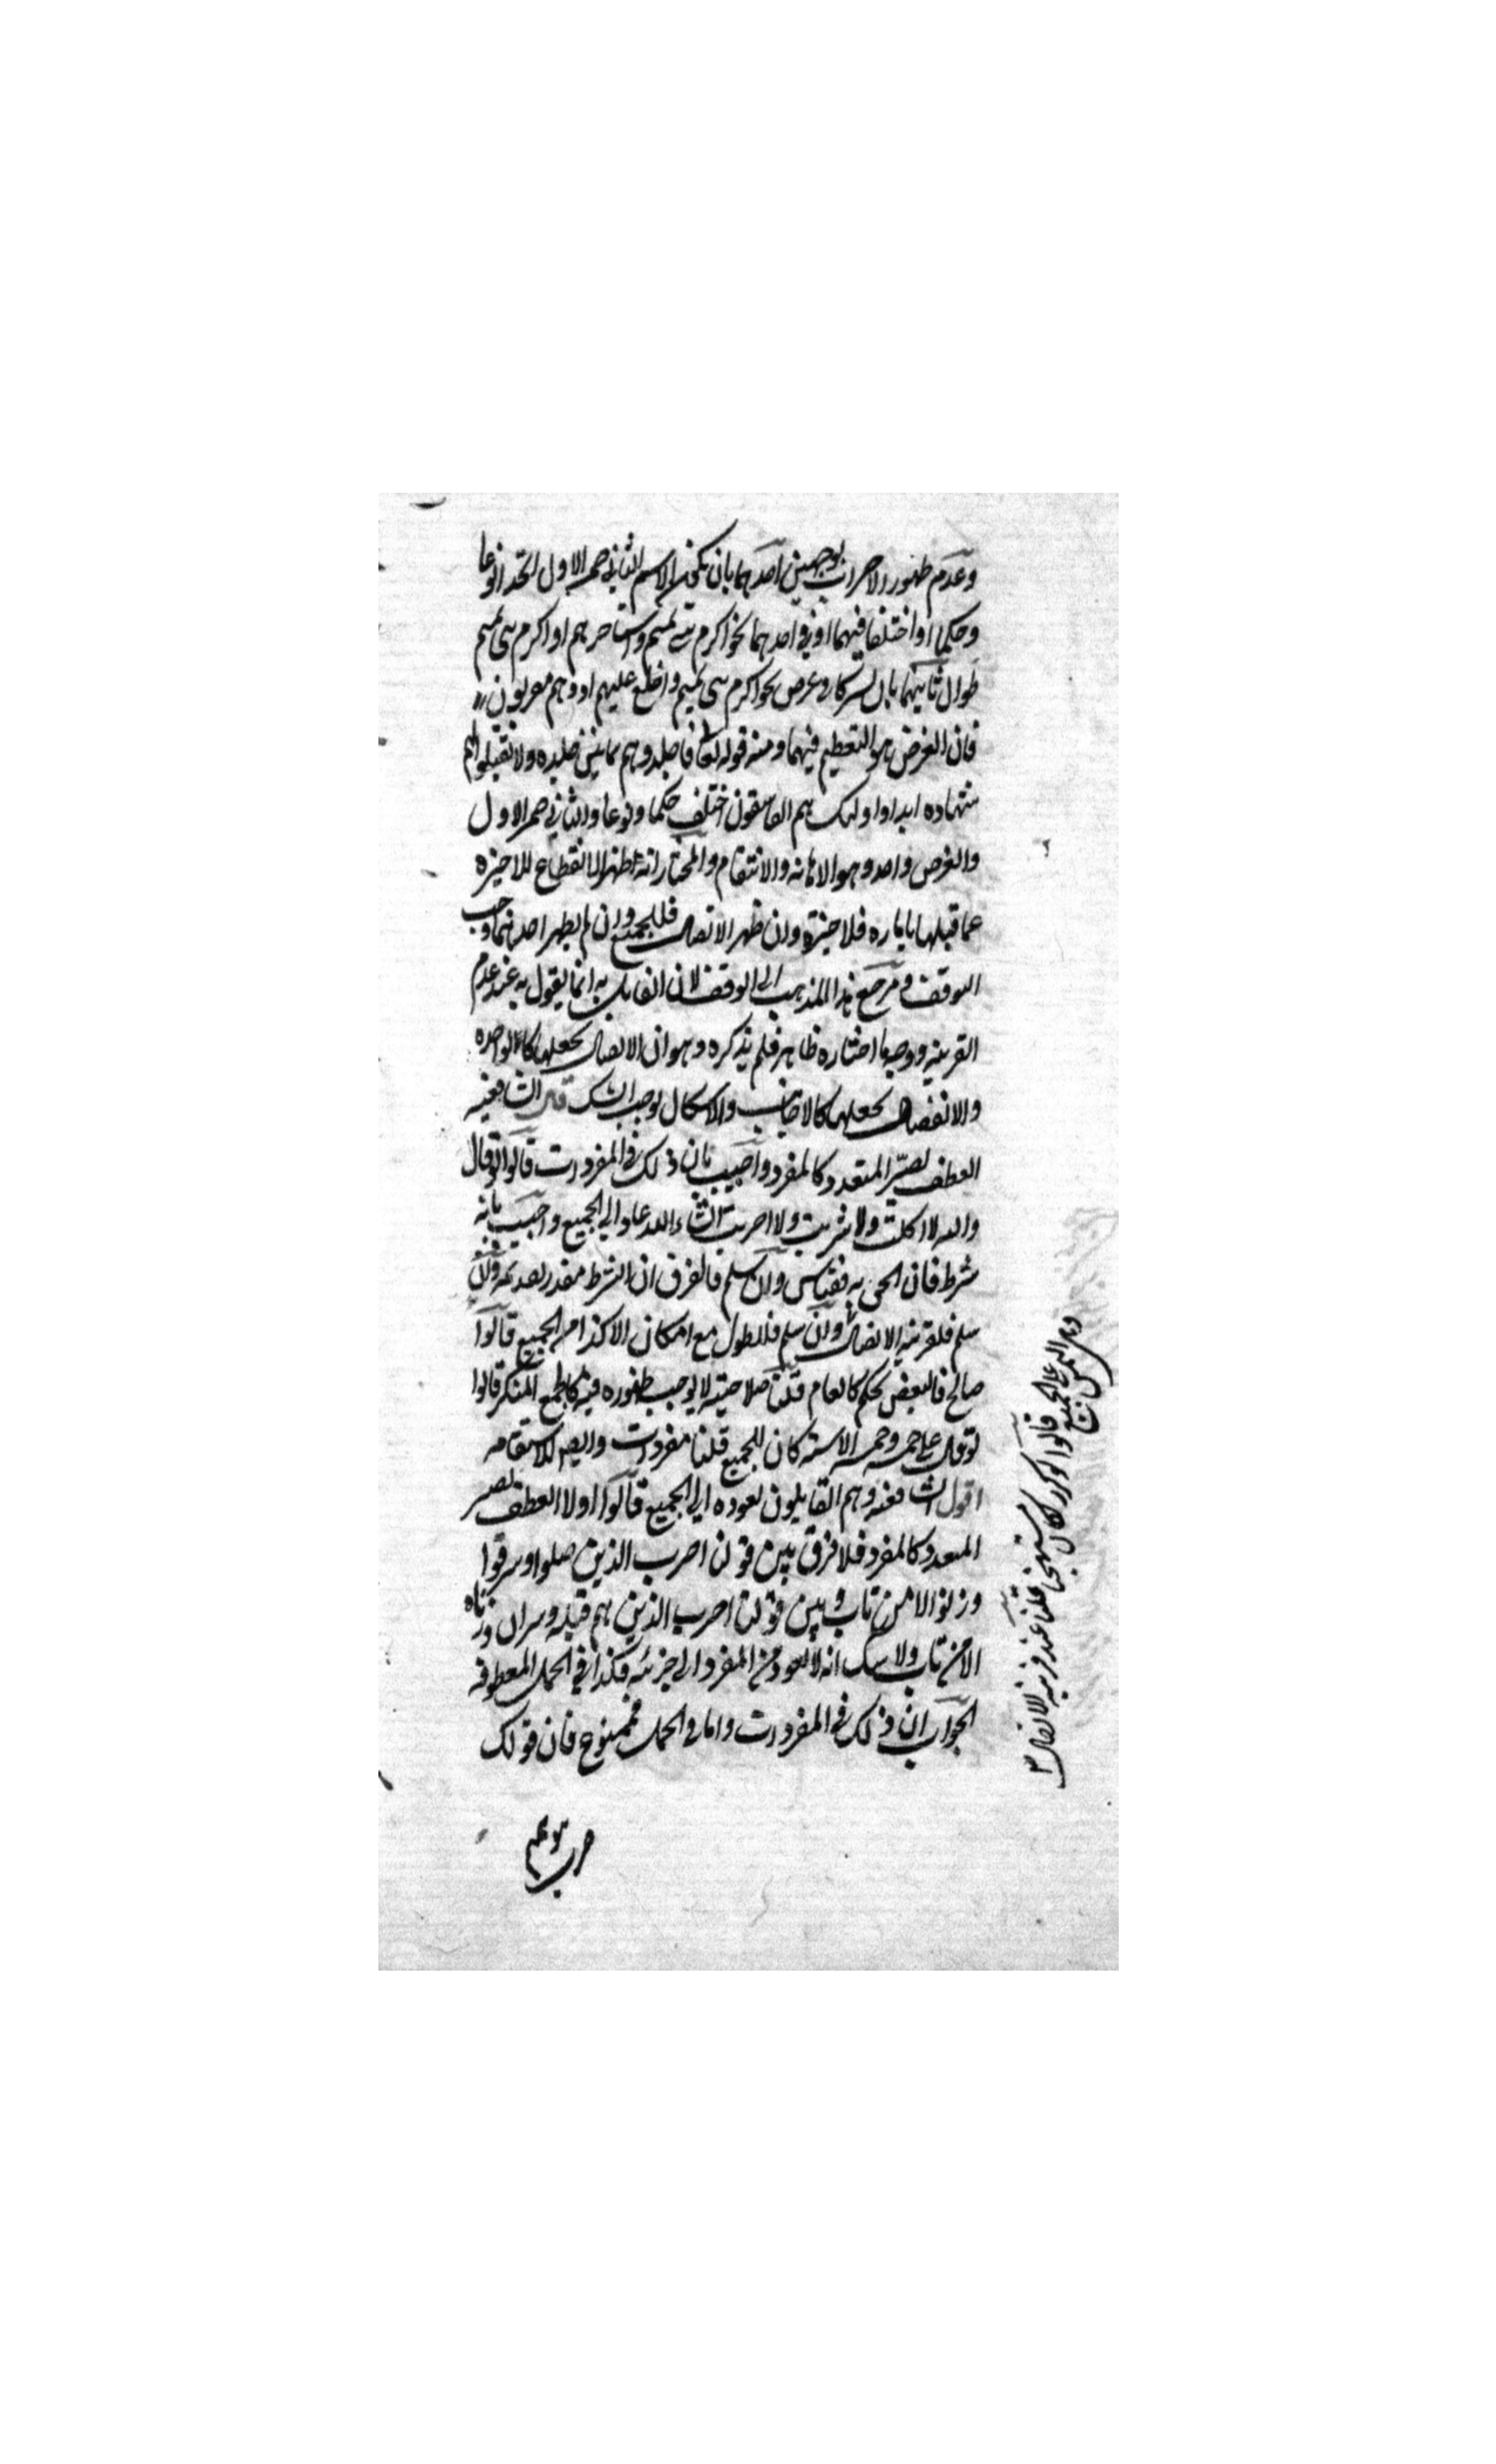 وعدم ظهور الاضراب بوجهين احدهما بان يكون الاسم الثاني ضمير الاول اتحدا نوعا
وحكما او اختلفا فيهما او في احدهما نحو اكرم بني تميم واستأجرهم او اكرم بني تميم
طوال ثانيهما بان يشتركا في غرض نحو اكرم بني تميم واخلع عليهم او وهم مقربون
فان الغرض هو التعظيم فيهما ومنه قوله تعالى فاجلدوهم ثمانين جلده ولا تقبلوا لهم
شهاده ابدا واولئك هم الفاسقون اختلف حكما ونوعا والثاني ضمير الاول
والغرض واحد وهو الاهانه والانتقام والمختار انه ان ظهر الانقطاع للاخيره
عما قبلها بأماره فللاخيرة وان ظهر الاتصال فللجميع وان لم يظهر احدهما وجب
الوقف ومرجع هذا المذهب الى الوقف لان القايل به انما يقول به عند عدم
القرينه ووجه ما اختاره ظاهر فلم يذكره وهو ان الاتصال يجعلها كالواحده
والانفصال يجعلها كالاجانب والاشكال يوجب الشك قال الشافعيه
العطف يصير المتعدد كالمفرد واجيب بان ذلك في المفردات قالوا لو قال
والله لا اكلت ولا شربت ولا ضربت ان شاء الله عاد الى الجميع واجيب بانه
شرط فان الحق به فقياس وان سلم فالفرق ان الشرط مقدر تقديمه وان
سلم فلقرينه الاتصال وان سلم فللطول مع امكان الا كذا من الجميع قالوا
صالح فالبعض تحكم كالعام قلنا صلاحيته لا يوجب ظهوره فيه كالجمع المنكر قالوا
لو قال علي خمسه وخمسه الا سته كان للجميع قلنا مفردات وايضا للاستقامه
اقول الشافعيه وهم القايلون بعوده الى الجميع قالوا اولا العطف يصير
المتعدد كالمفرد فلا فرق بين قولنا اضرب الذين قتلوا وسرقوا
وزنوا الا من تاب وبين قولنا اضرب الذين هم قتله وسراق وزناه
الا من تاب ولا شك انه لا يعود من المفرد الى جزئه فكذا في الجمل المعطوفه
الجواب ان ذلك في المفردات واما في الجمل فممنوع فان قولك
قالوا لو كرر لكان
مستهجنا قلنا عند قرينه الاتصال